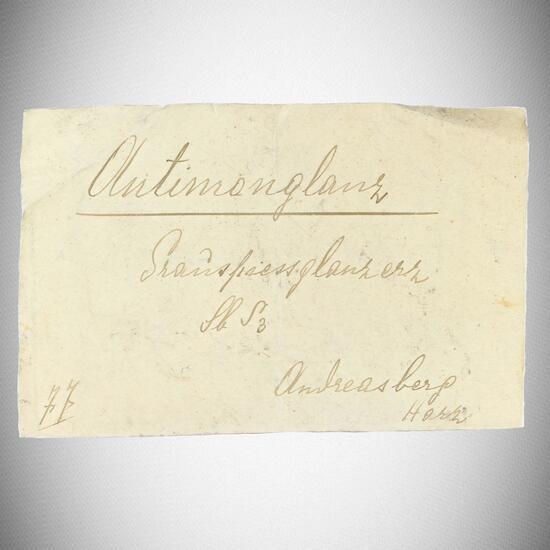 Antimonglanz
Grauspiessglanzerz
Sb S3
Andreasberg
Harz
77